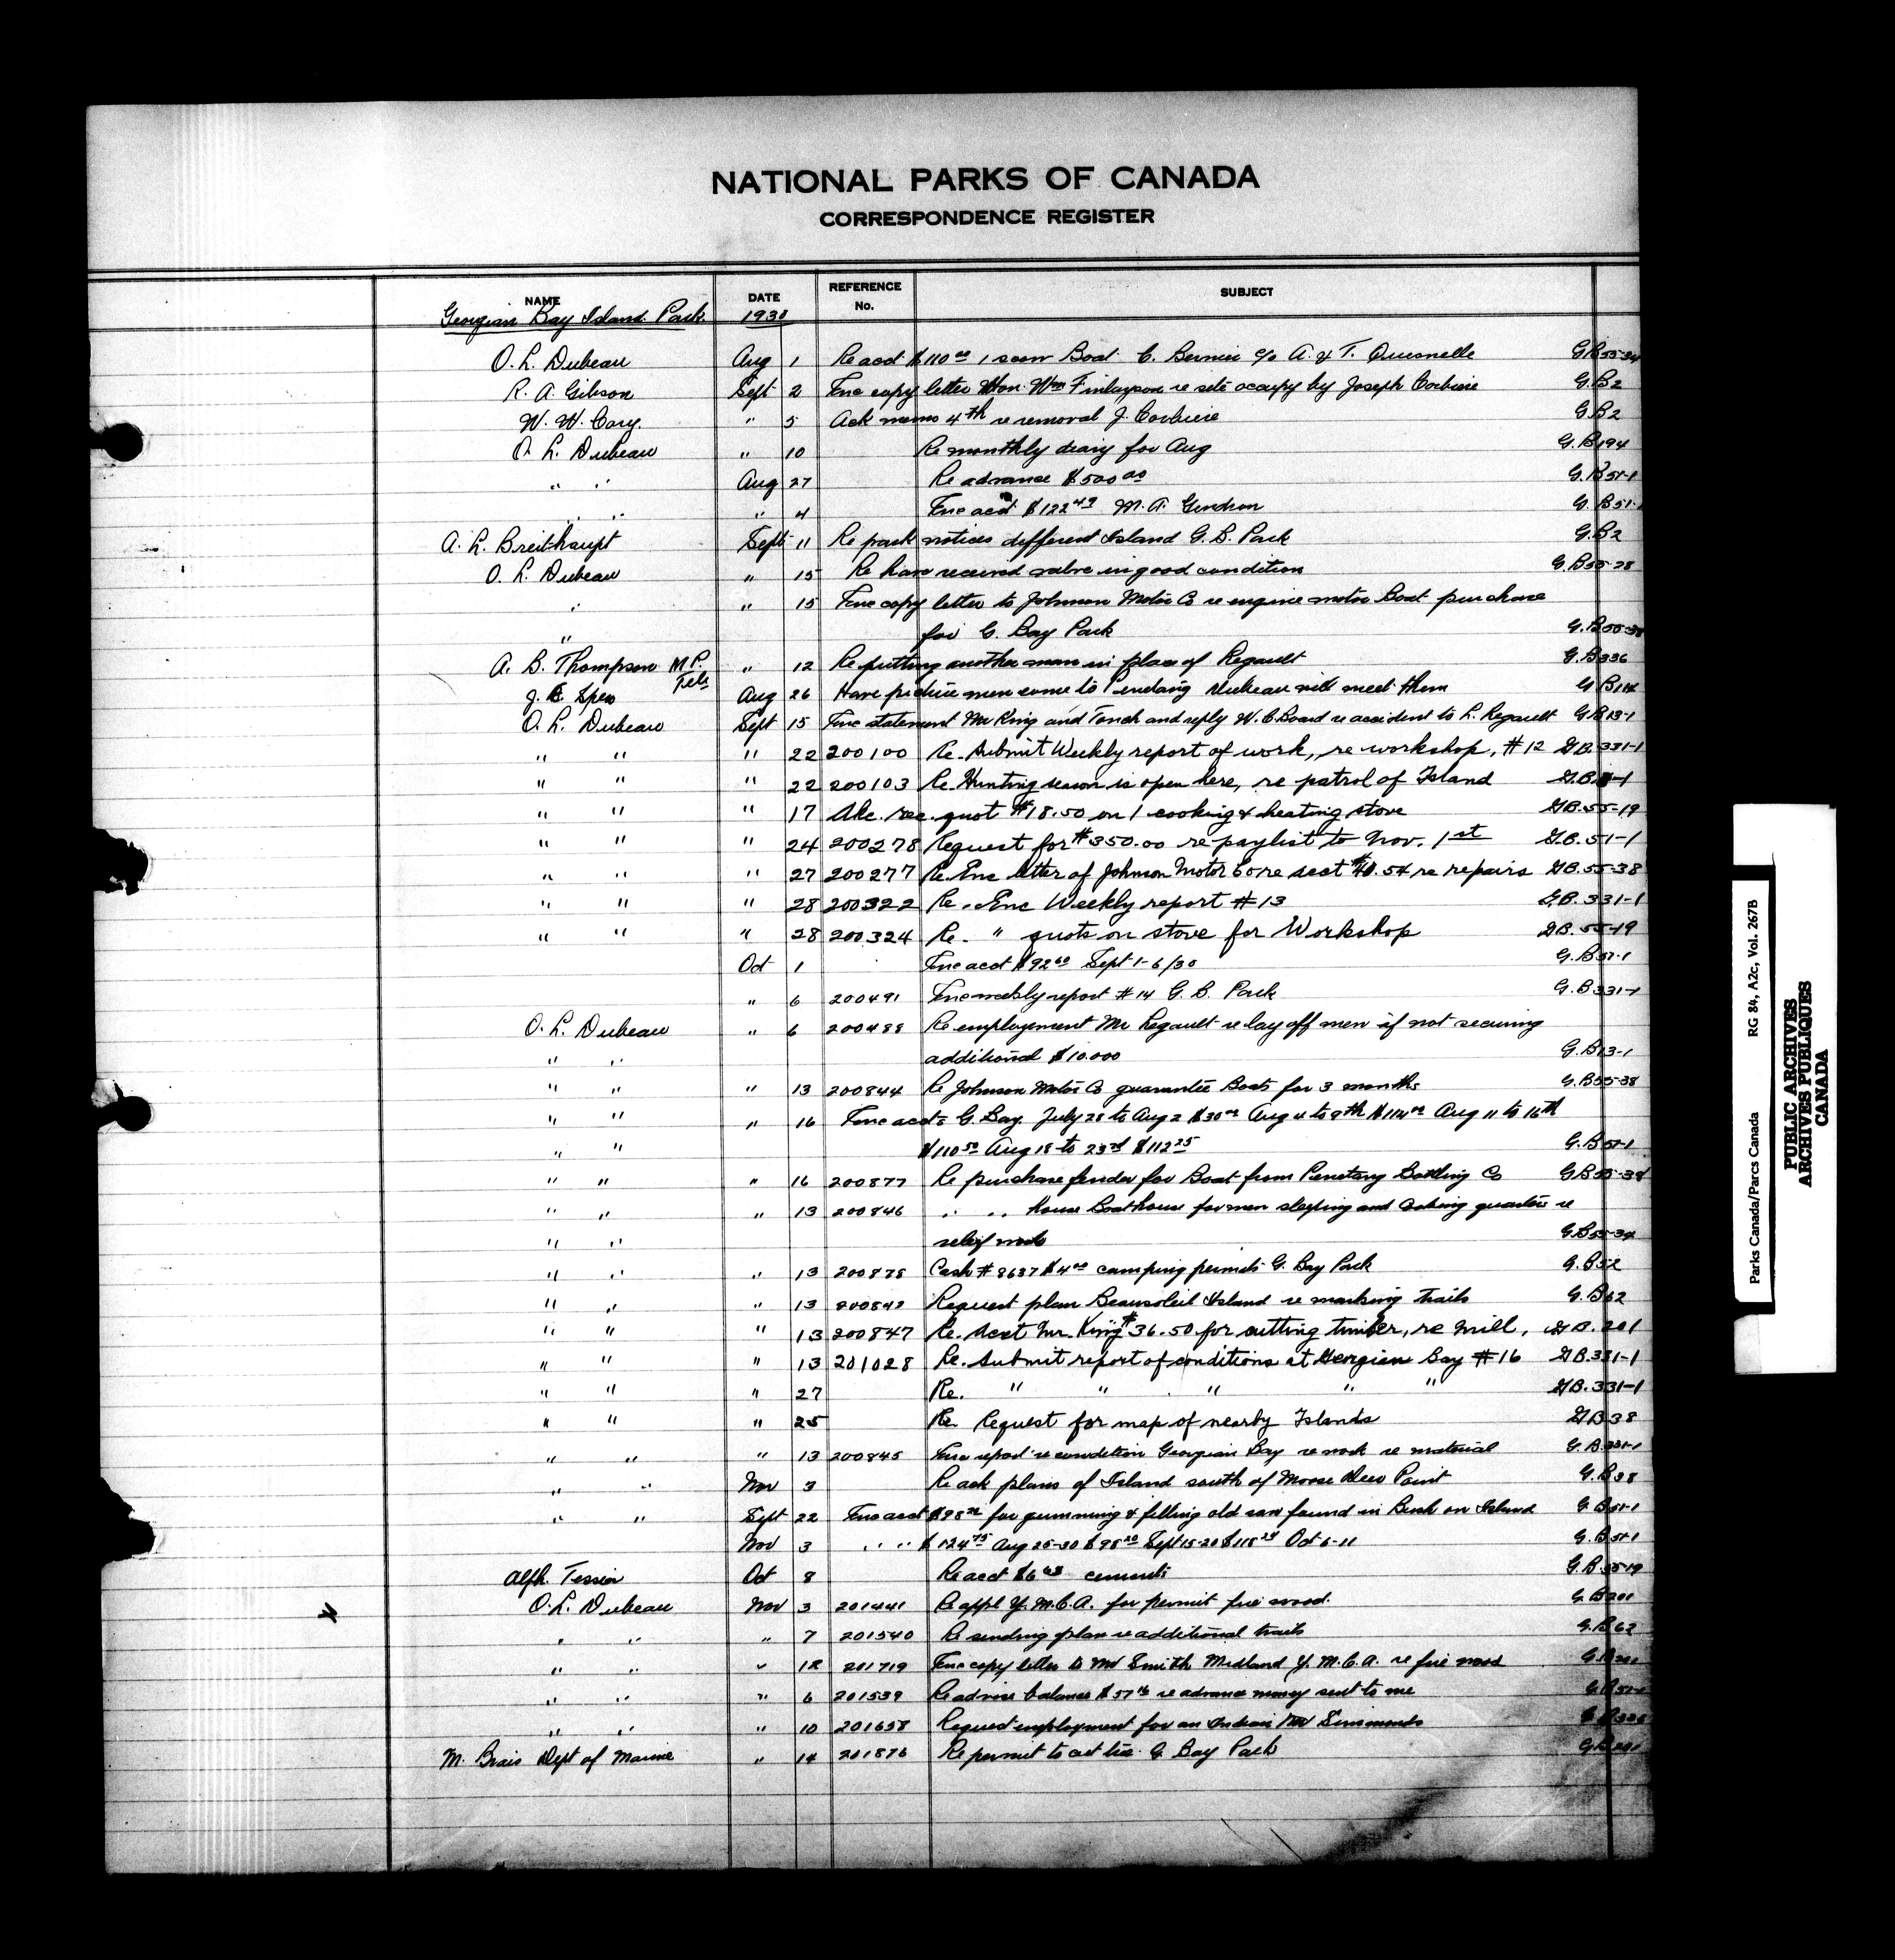 NATIONAL PARKS OF CANADA
CORRESPONDENCE REGISTER
NAME DATE REFERENCE No. SUBJECT
Georgian Bay Island Park 1930
O. L. Dubeau Aug 1 Re acct $110.00 1 scow Boat C. Bernier c/o A. & T. Quesnelle G.B 55-34
R. A. Gibson Sept 2 Enc copy letter Hon. Wm Finlayson re site occupy by Joseph Corbiere G.B 2
W. W. Cory " 5 Ack memo 4th re removal J. Corbiere G.B 2
O. L. Dubeau " 10 Re monthly diary for Aug G.B 194
" " Aug 27 Re advance $500.00 G.B 51-1
" " " 4 Enc acct $122.49 M. A. Gendron G.B 51-1
A. L. Breithaupt Sept 11 Re park notices different Island G. B. Park G.B 2
O. L. Dubeau " 15 Re have received valve in good condition G.B 55-28
" " 15 Enc copy letter to Johnson Motor Co re engine motor Boat purchase
" for G. Bay Park G.B 55-38
A. B. Thompson M.P. " 12 Re putting another man in place of Regault G.B 336
J. C. Spero Tele Aug 26 Have picture men come to Penetang Dubeau will meet them G.B 114
O. L. Dubeau Sept 15 Enc statement Mr King and Tonch and reply W. C. Board re accident to L. Regault G.B 13-1
" " " 22 200100 Re. Submit Weekly report of work, re workshop, #12 G.B. 331-1
" " " 22 200103 Re. Hunting season is open here, re patrol of Island G.B. -1
" " " 17 Akc. rec. quot $18.50 on 1 cooking & heating stove G.B. 55-19
" " " 24 200278 Request for $350.00 re paylist to Nov. 1st G.B. 51-1
" " " 27 200277 Re. Enc letter of Johnson Motor Co re acct $40.54 re repairs G.B. 55-38
" " " 28 200322 Re. Enc Weekly report #13 G.B. 331-1
" " " 28 200324 Re. " quots on stove for Workshop G.B. 55-19
Oct 1 Enc acct $92.60 Sept 1-6/30 G.B 51-1
" 6 200491 Enc weekly report #14 G. B. Park G.B 331-1
O. L. Dubeau " 6 200488 Re employement Mr Regault re lay off men if not securing
" " additional $10.000 G.B 13-1
" " " 13 200844 Re Johnson Motor Co guarantee Boats for 3 months G.B 55-38
" " " 16 Enc accts G. Bay. July 28 to Aug 2 $30.00 Aug 4 to 9th $114.00 Aug 11 to 16th
" " $110.50 Aug 18 to 23rd $112.25 G.B 51-1
" " " 16 200877 Re purchase fender for Boat from Penetang Bottling Co G.B 55-38
" " " 13 200846 " " house Boathouse for men sleeping and cooking quarters re
" " relief work G.B 55-34
" " " 13 200878 Cash #8637 $4.00 camping permits G. Bay Park G.B 52
" " " 13 200842 Request plan Beausoleil Island re marking trails G.B 62
" " " 13 200847 Re. Acct Mr. King $36.50 for cutting timber, re Mill, G.B. 201
" " " 13 201028 Re. Submit report of conditions at Georgian Bay #16 G.B. 331-1
" " " 27 Re. " " " " " G.B. 331-1
" " " 25 Re. Request for map of nearby Islands G.B 38
" " " 13 200845 Enc report re condition Georgian Bay re work re material G.B. 331-1
" " Nov 3 Re ack plans of Island south of Moose Deer Point G.B 38
" " Sept 22 Enc acct for gumming & filling old saw found in Bush on Island G.B 51-1
Nov 3 " " $124.75 Aug 25-30 $98.20 Sept 15-20 $118.24 Oct 6-11 G.B 51-1
Alph. Tessier Oct 8 Re acct $6.63 cement G.B. 55-19
O. L. Dubeau Nov 3 201441 Re appl Y. M. C. A. for permit fire wood. G.B 201
" " " 7 201540 Re sending plan re additional trails G.B 62
" " " 12 201719 Enc copy letter to Mr Smith Midland Y. M. C. A. re fire wood G.B 201
" " " 6 201539 Re advise balance re advance money sent to me G.B 51-1
" " " 10 201658 Request employment for an Indian Mr Simmonds
M. Brais Dept of Marine " 14 201876 Re permit to cut tree G. Bay Park G.B 201
Parks Canada/Parcs Canada RG 84, A2c, Vol. 267B
PUBLIC ARCHIVES
ARCHIVES PUBLIQUES
CANADA